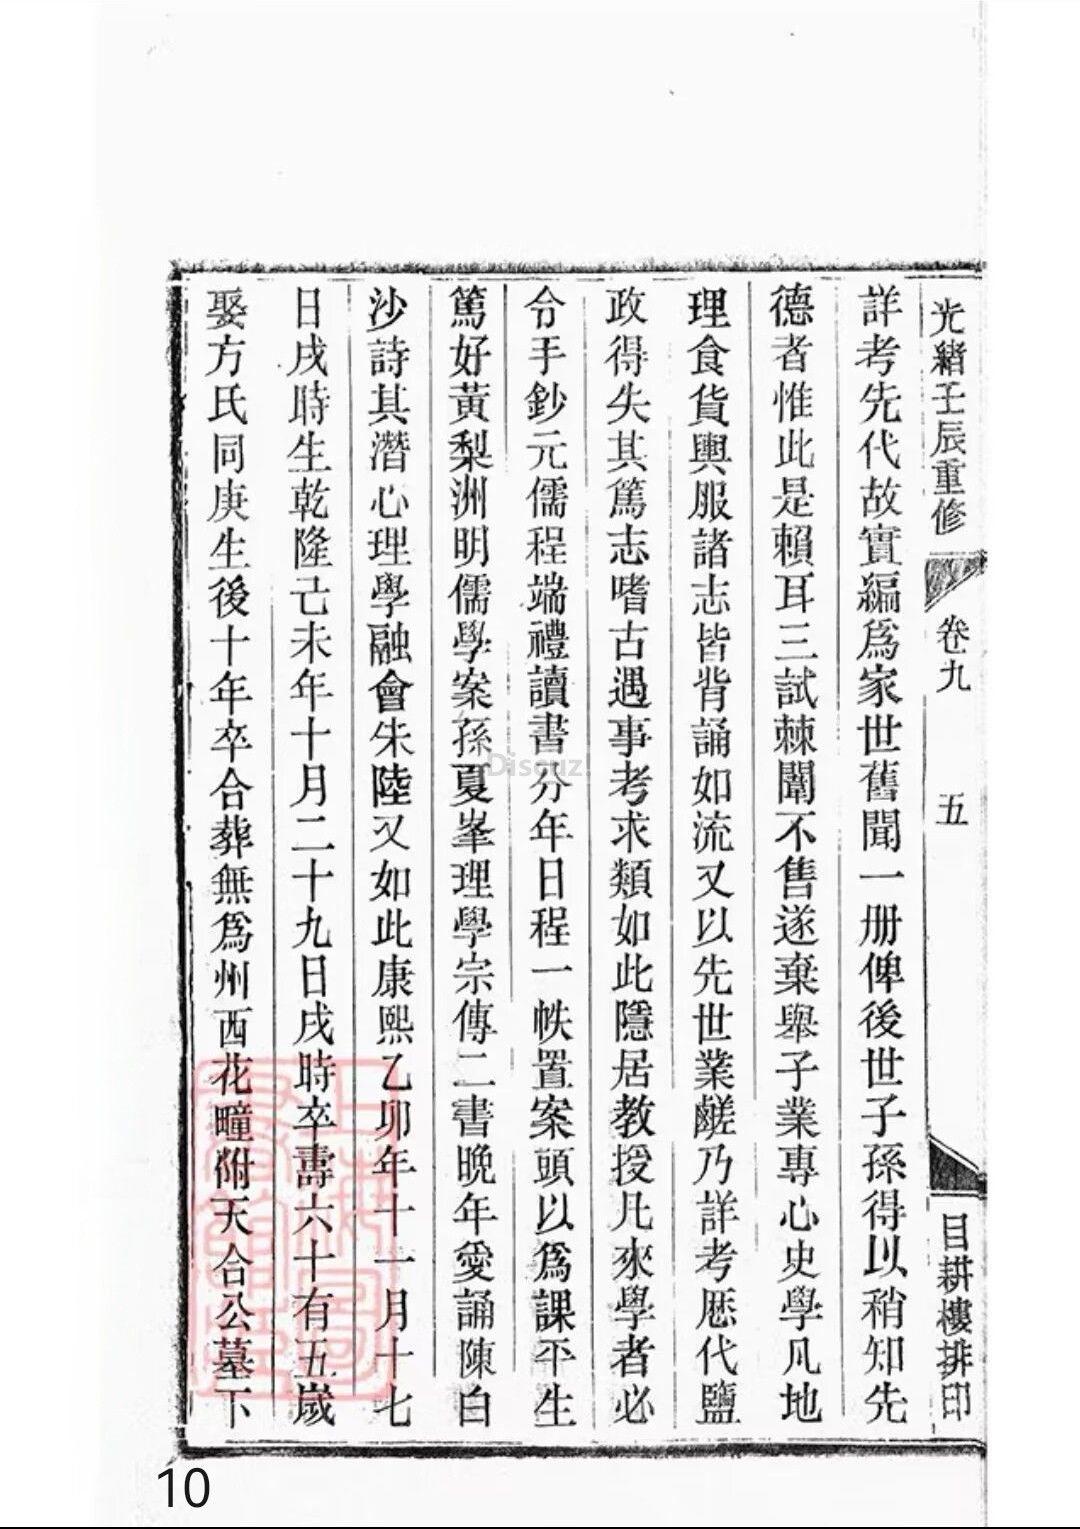 光緒壬辰重修
卷九
五
目耕樓排印
詳考先代故實編爲家世舊聞一册俾後世子孫得以稍知先
德者惟此是賴耳三試棘闈不售遂棄舉子業專心史學凡地
理食貨輿服諸志皆背誦如流又以先世業鹺乃詳考歷代鹽
政得失其篤志嗜古遇事考求類如此隱居教授凡來學者必
令手鈔元儒程端禮讀書分年日程一帙置案頭以爲課平生
篤好黃梨洲明儒學案孫夏峯理學宗傳二書晚年愛誦陳白
沙詩其潛心理學融會朱陸又如此康熙乙卯年十一月十七
日戌時生乾隆己未年十月二十九日戌時卒壽六十有五歲
娶方氏同庚生後十年卒合葬無爲州西花疃附天合公墓下
Discuz!
上海圖書館藏
10